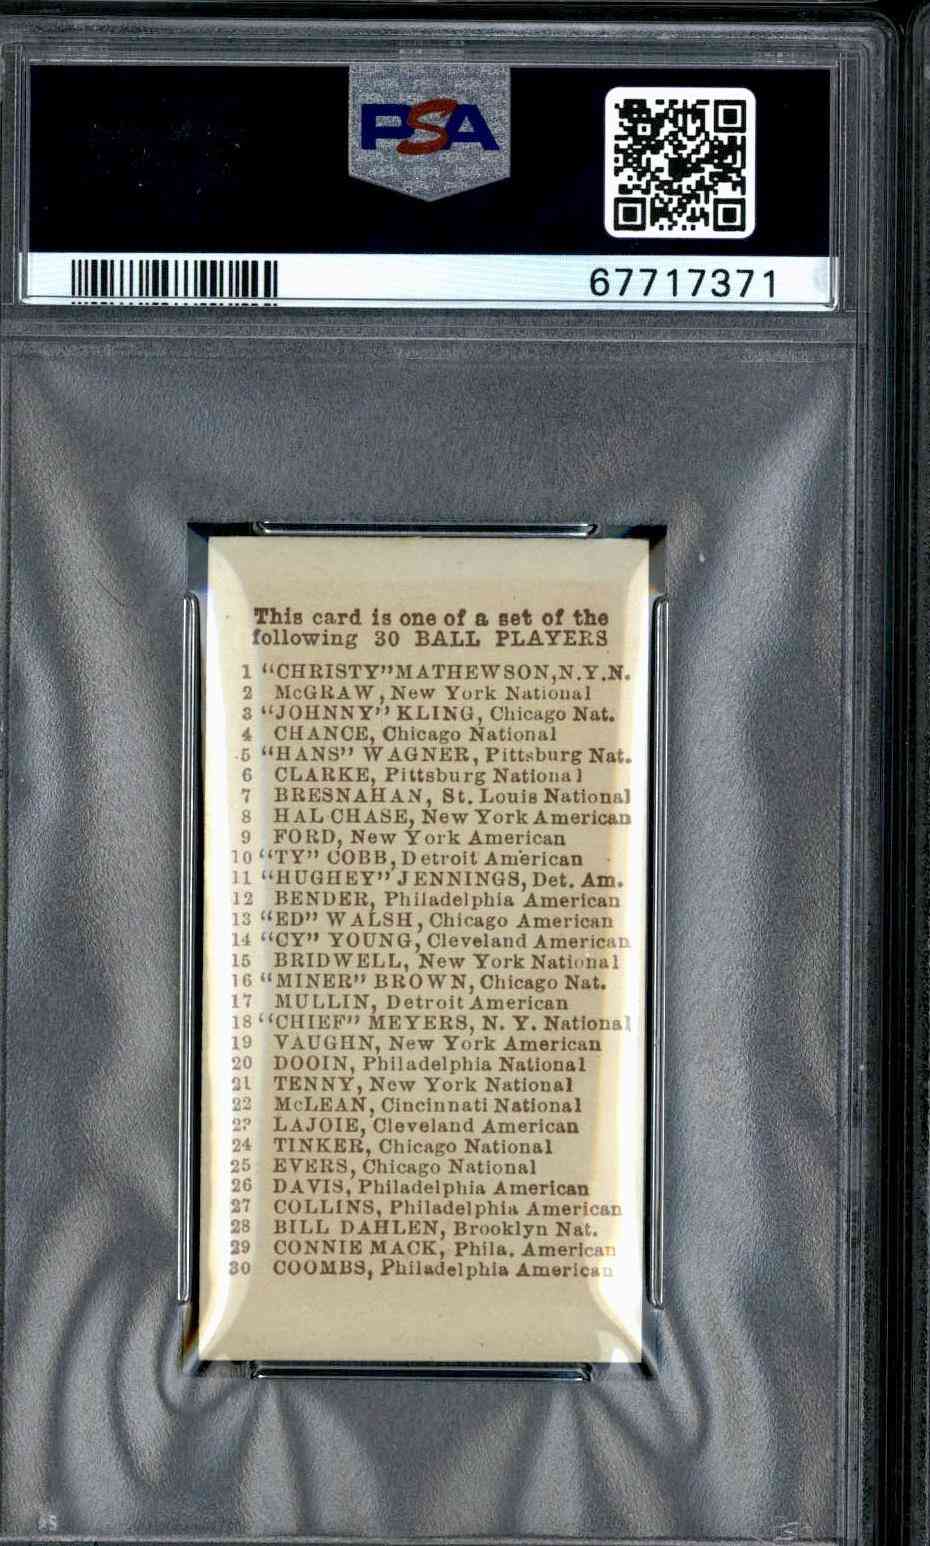 PSA
67717371
This card is one of a set of the
following 30 BALL PLAYERS
1 “CHRISTY” MATHEWSON, N.Y.N.
2 McGRAW, New York National
3 “JOHNNY” KLING, Chicago Nat.
4 CHANCE, Chicago National
5 “HANS” WAGNER, Pittsburg Nat.
6 CLARKE, Pittsburg National
7 BRESNAHAN, St. Louis National
8 HAL CHASE, New York American
9 FORD, New York American
10 “TY” COBB, Detroit American
11 “HUGHEY” JENNINGS, Det. Am.
12 BENDER, Philadelphia American
13 “ED” WALSH, Chicago American
14 “CY” YOUNG, Cleveland American
15 BRIDWELL, New York National
16 “MINER” BROWN, Chicago Nat.
17 MULLIN, Detroit American
18 “CHIEF” MEYERS, N. Y. National
19 VAUGHN, New York American
20 DOOIN, Philadelphia National
21 TENNY, New York National
22 McLEAN, Cincinnati National
23 LAJOIE, Cleveland American
24 TINKER, Chicago National
25 EVERS, Chicago National
26 DAVIS, Philadelphia American
27 COLLINS, Philadelphia American
28 BILL DAHLEN, Brooklyn Nat.
29 CONNIE MACK, Phila. American
30 COOMBS, Philadelphia American